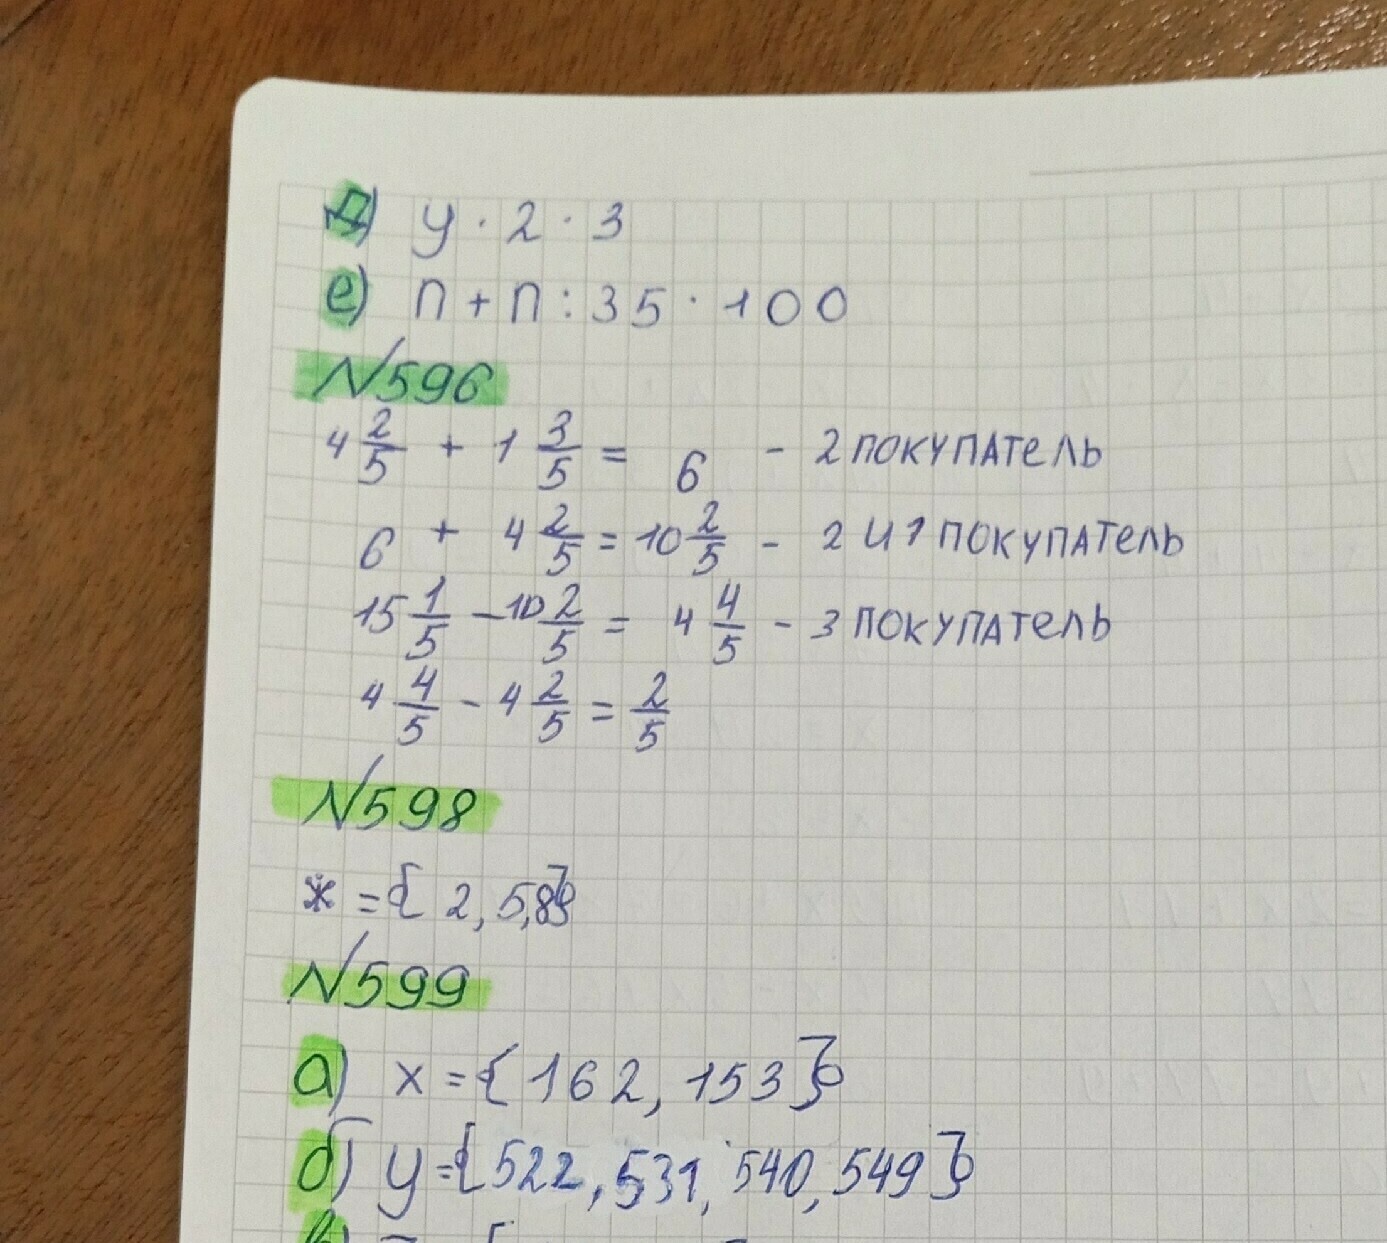 Д) у · 2 · 3
е) п + п : 35 · 100
№596
4 2/5 + 1 3/5 = 6 - 2 покупатель
6 + 4 2/5 = 10 2/5 - 2 и 1 покупатель
15 1/5 - 10 2/5 = 4 4/5 - 3 покупатель
4 4/5 - 4 2/5 = 2/5
№598
* = { 2, 5, 8}
№599
а) х = { 162, 153 }
б) у = { 522, 531, 540, 549 }